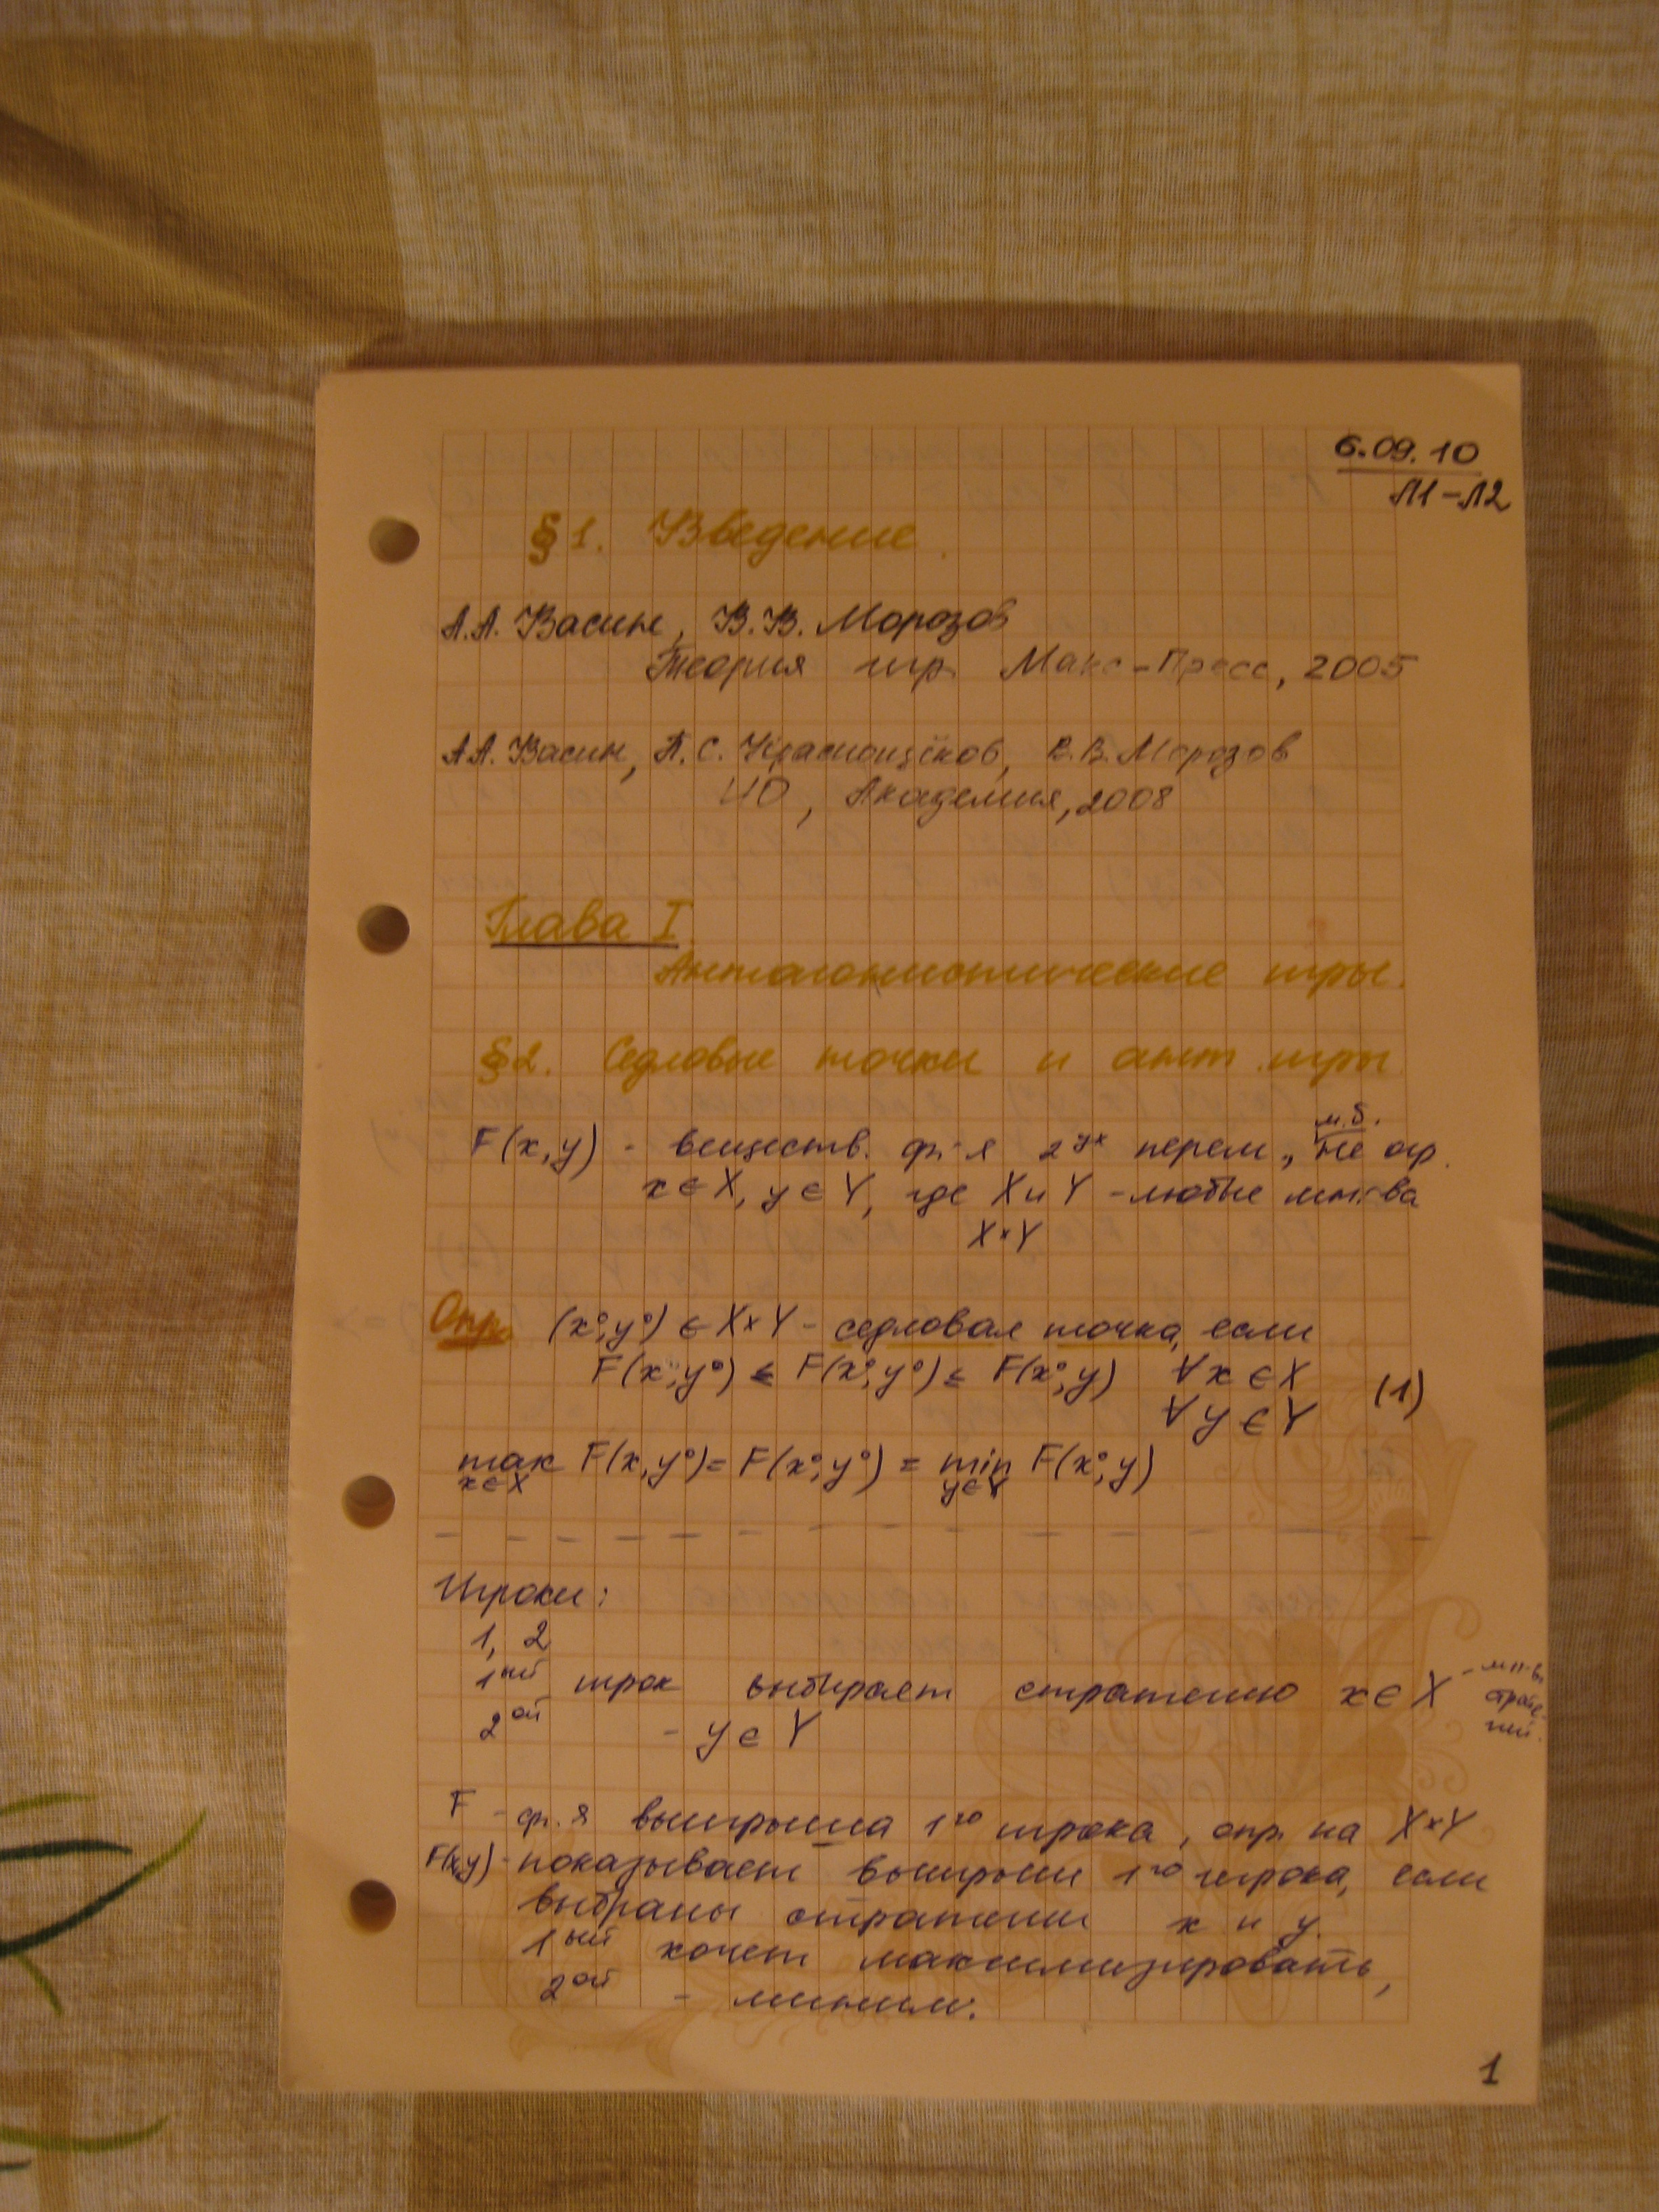 6.09.10
Л1-Л2
§1. Введение.
А.А. Васин, В.В. Морозов
Теория игр Макс-Пресс, 2005
А.А. Васин, П.С. Краснощёков, В.В. Морозов
ИО, Академия, 2008
Глава I.
Антагонистические игры.
§2. Седловые точки и ант. игры
м.б.
F(x,y) - веществ. ф-я 2ух перем., не огр.
x∈X, y∈Y, где X и Y - любые мн-ва
X×Y
Опр. (x⁰,y⁰) ∈ X×Y - седловая точка, если
F(x,y⁰) ≤ F(x⁰,y⁰) ≤ F(x⁰,y) ∀x∈X
∀y∈Y (1)
max F(x,y⁰) = F(x⁰,y⁰) = min F(x⁰,y)
x∈X y∈Y
Игроки:
1, 2
1ый игрок выбирает стратегию x∈X - мн-во стратегий.
2ой - y∈Y
F - ф-я выигрыша 1го игрока, опр. на X×Y
F(x,y) - показывает выигрыш 1го игрока, если
выбраны стратегии x и y.
1ый хочет максимизировать,
2ой - миним.
1